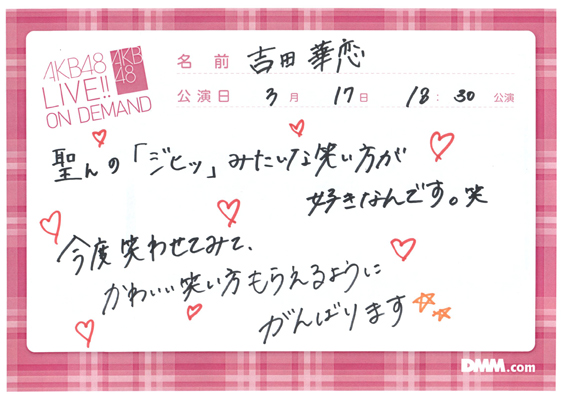 AKB48
LIVE!!
ON DEMAND
AKB
48
名前 吉田華恋
公演日 3月 17日 18:30 公演
聖んの「ジヒッ」みたいな笑い方が
好きなんです。笑
今度笑わせてみて、
かわいい笑い方もらえるように
がんばります
DMM.com